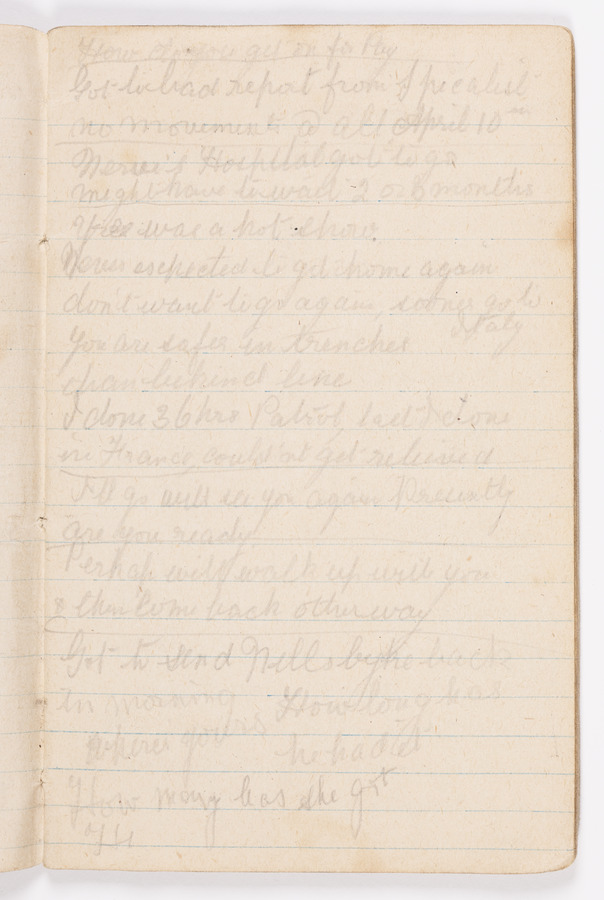 How do you get on for Pay
Got to bad report from Specalist
no movement @ all April 10
Nerve's Hospital got to go
might have to wait 2 or 3 months
was a hot show
Never expected to get home again
don't want to go again, sooner go to
Italy
You are safer in trenches
than behind line
I done 36 hrs Patrol last I done
in France couldn't get relieved
I'll go will see you again Presently
are you ready
Perhap will walk up with you
& then Come back other way
Got to send Nells byke back
in morning How long has
wheres yours he had it
How many has she got